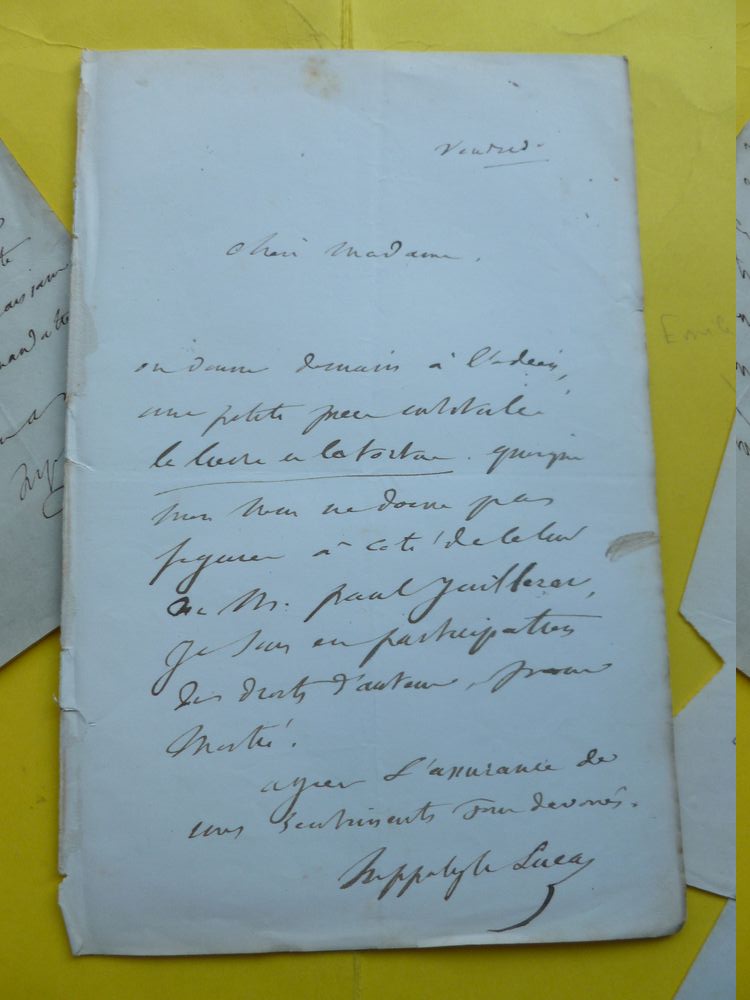 Vendredi
chère madame.
on donne demain à l'odéon,
une petite pièce intitulée
le lievre et la tortue. quoique
mon nom ne doive pas
figurer à coté de celui
de M. paul Juillerat,
je suis en participation
des droits d'auteur, pour
moitié.
agréer l'assurance de
mes sentiments tout devoués.
hippolyte Lucas